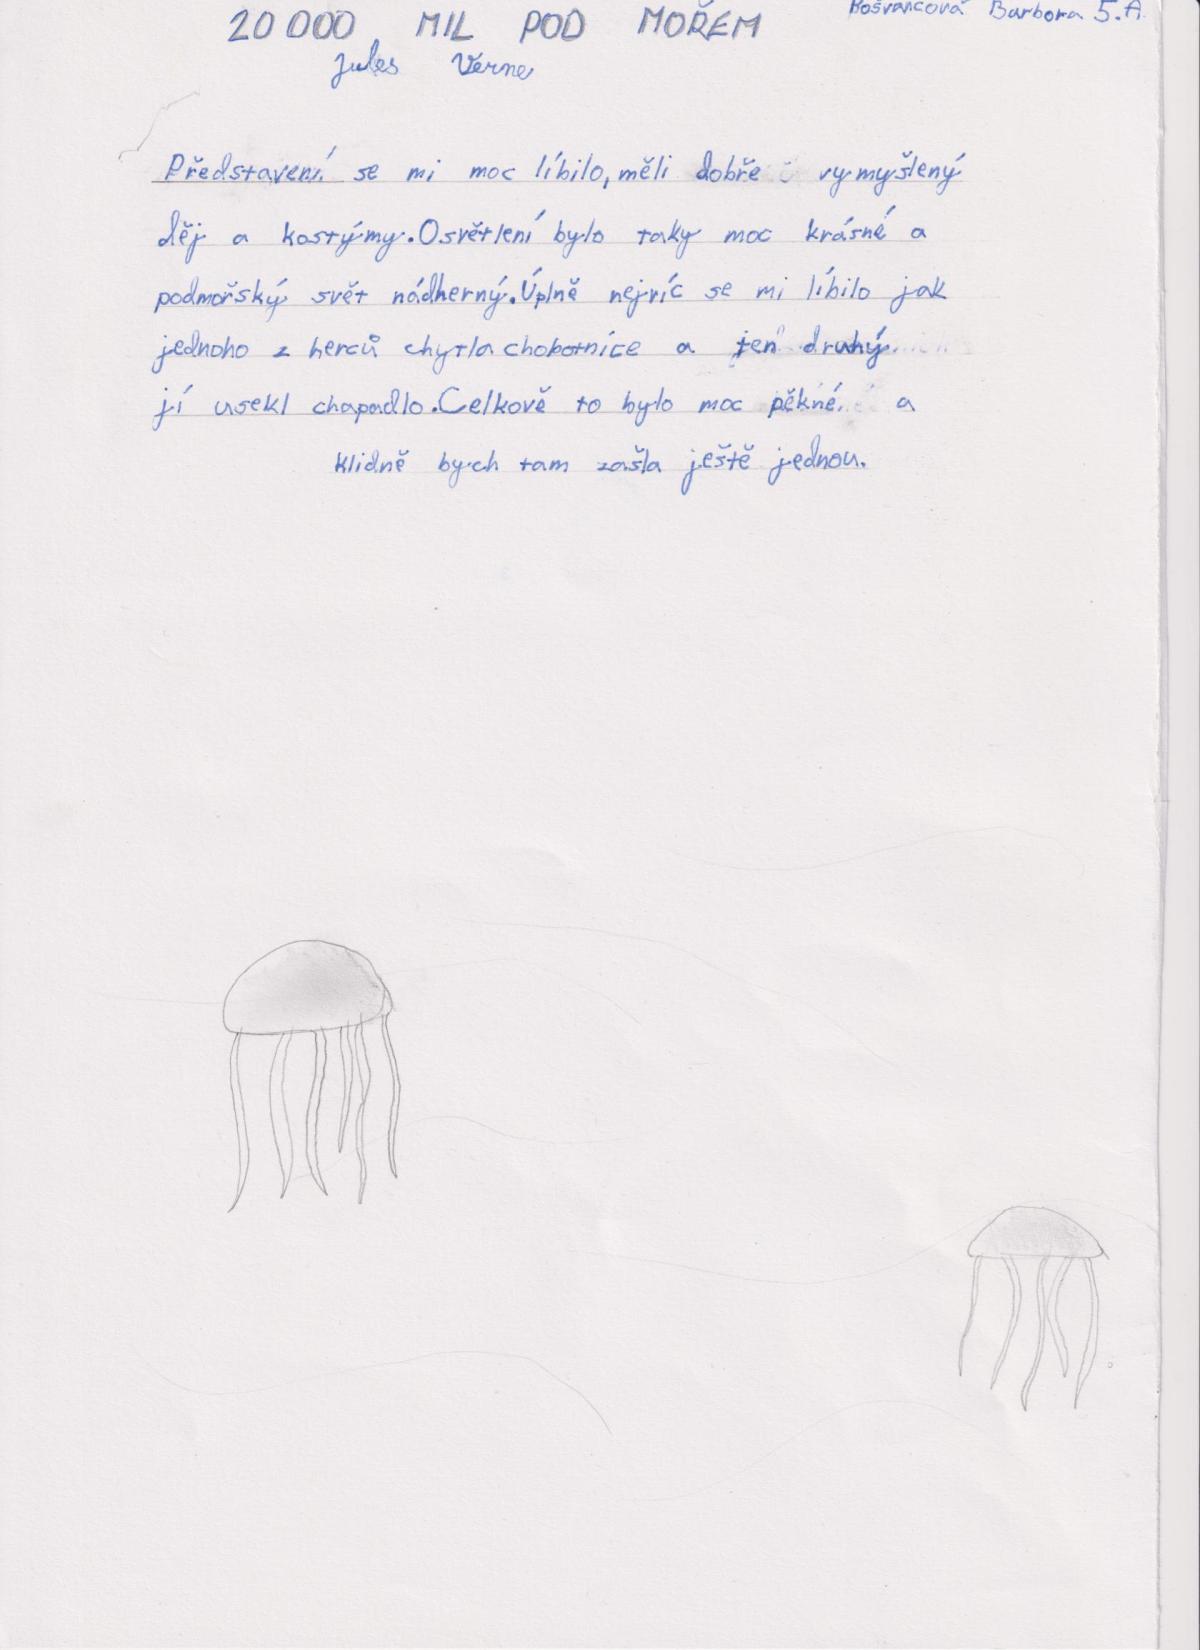 20 000 MIL POD MOŘEM
Barbora 5.A.
Jules Verne
Představení se mi moc líbilo, měli dobře vymyšlený
děj a kostýmy. Osvětlení bylo taky moc krásné a
podmořský svět nádherný. Úplně nejvíc se mi líbilo jak
jednoho z herců chytla chobotnice a ten druhý
jí usekl chapadlo. Celkově to bylo moc pěkné a
klidně bych tam zašla ještě jednou.